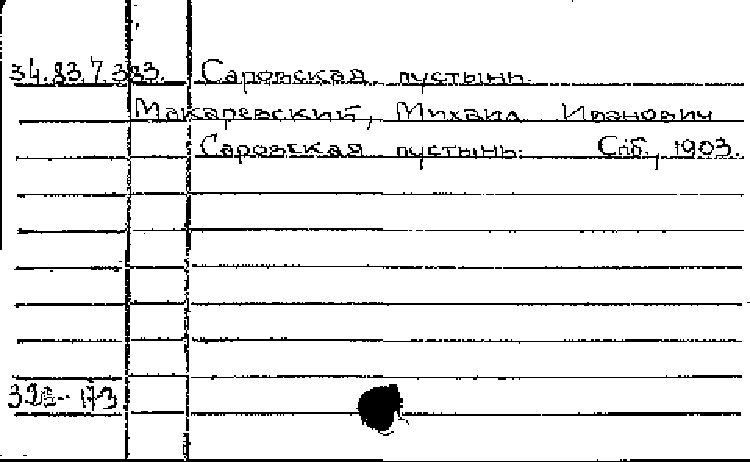 34.83.7.383. Саровская пустынь.
Макаревский, Михаил Иванович
Саровская пустынь. Спб., 1903.